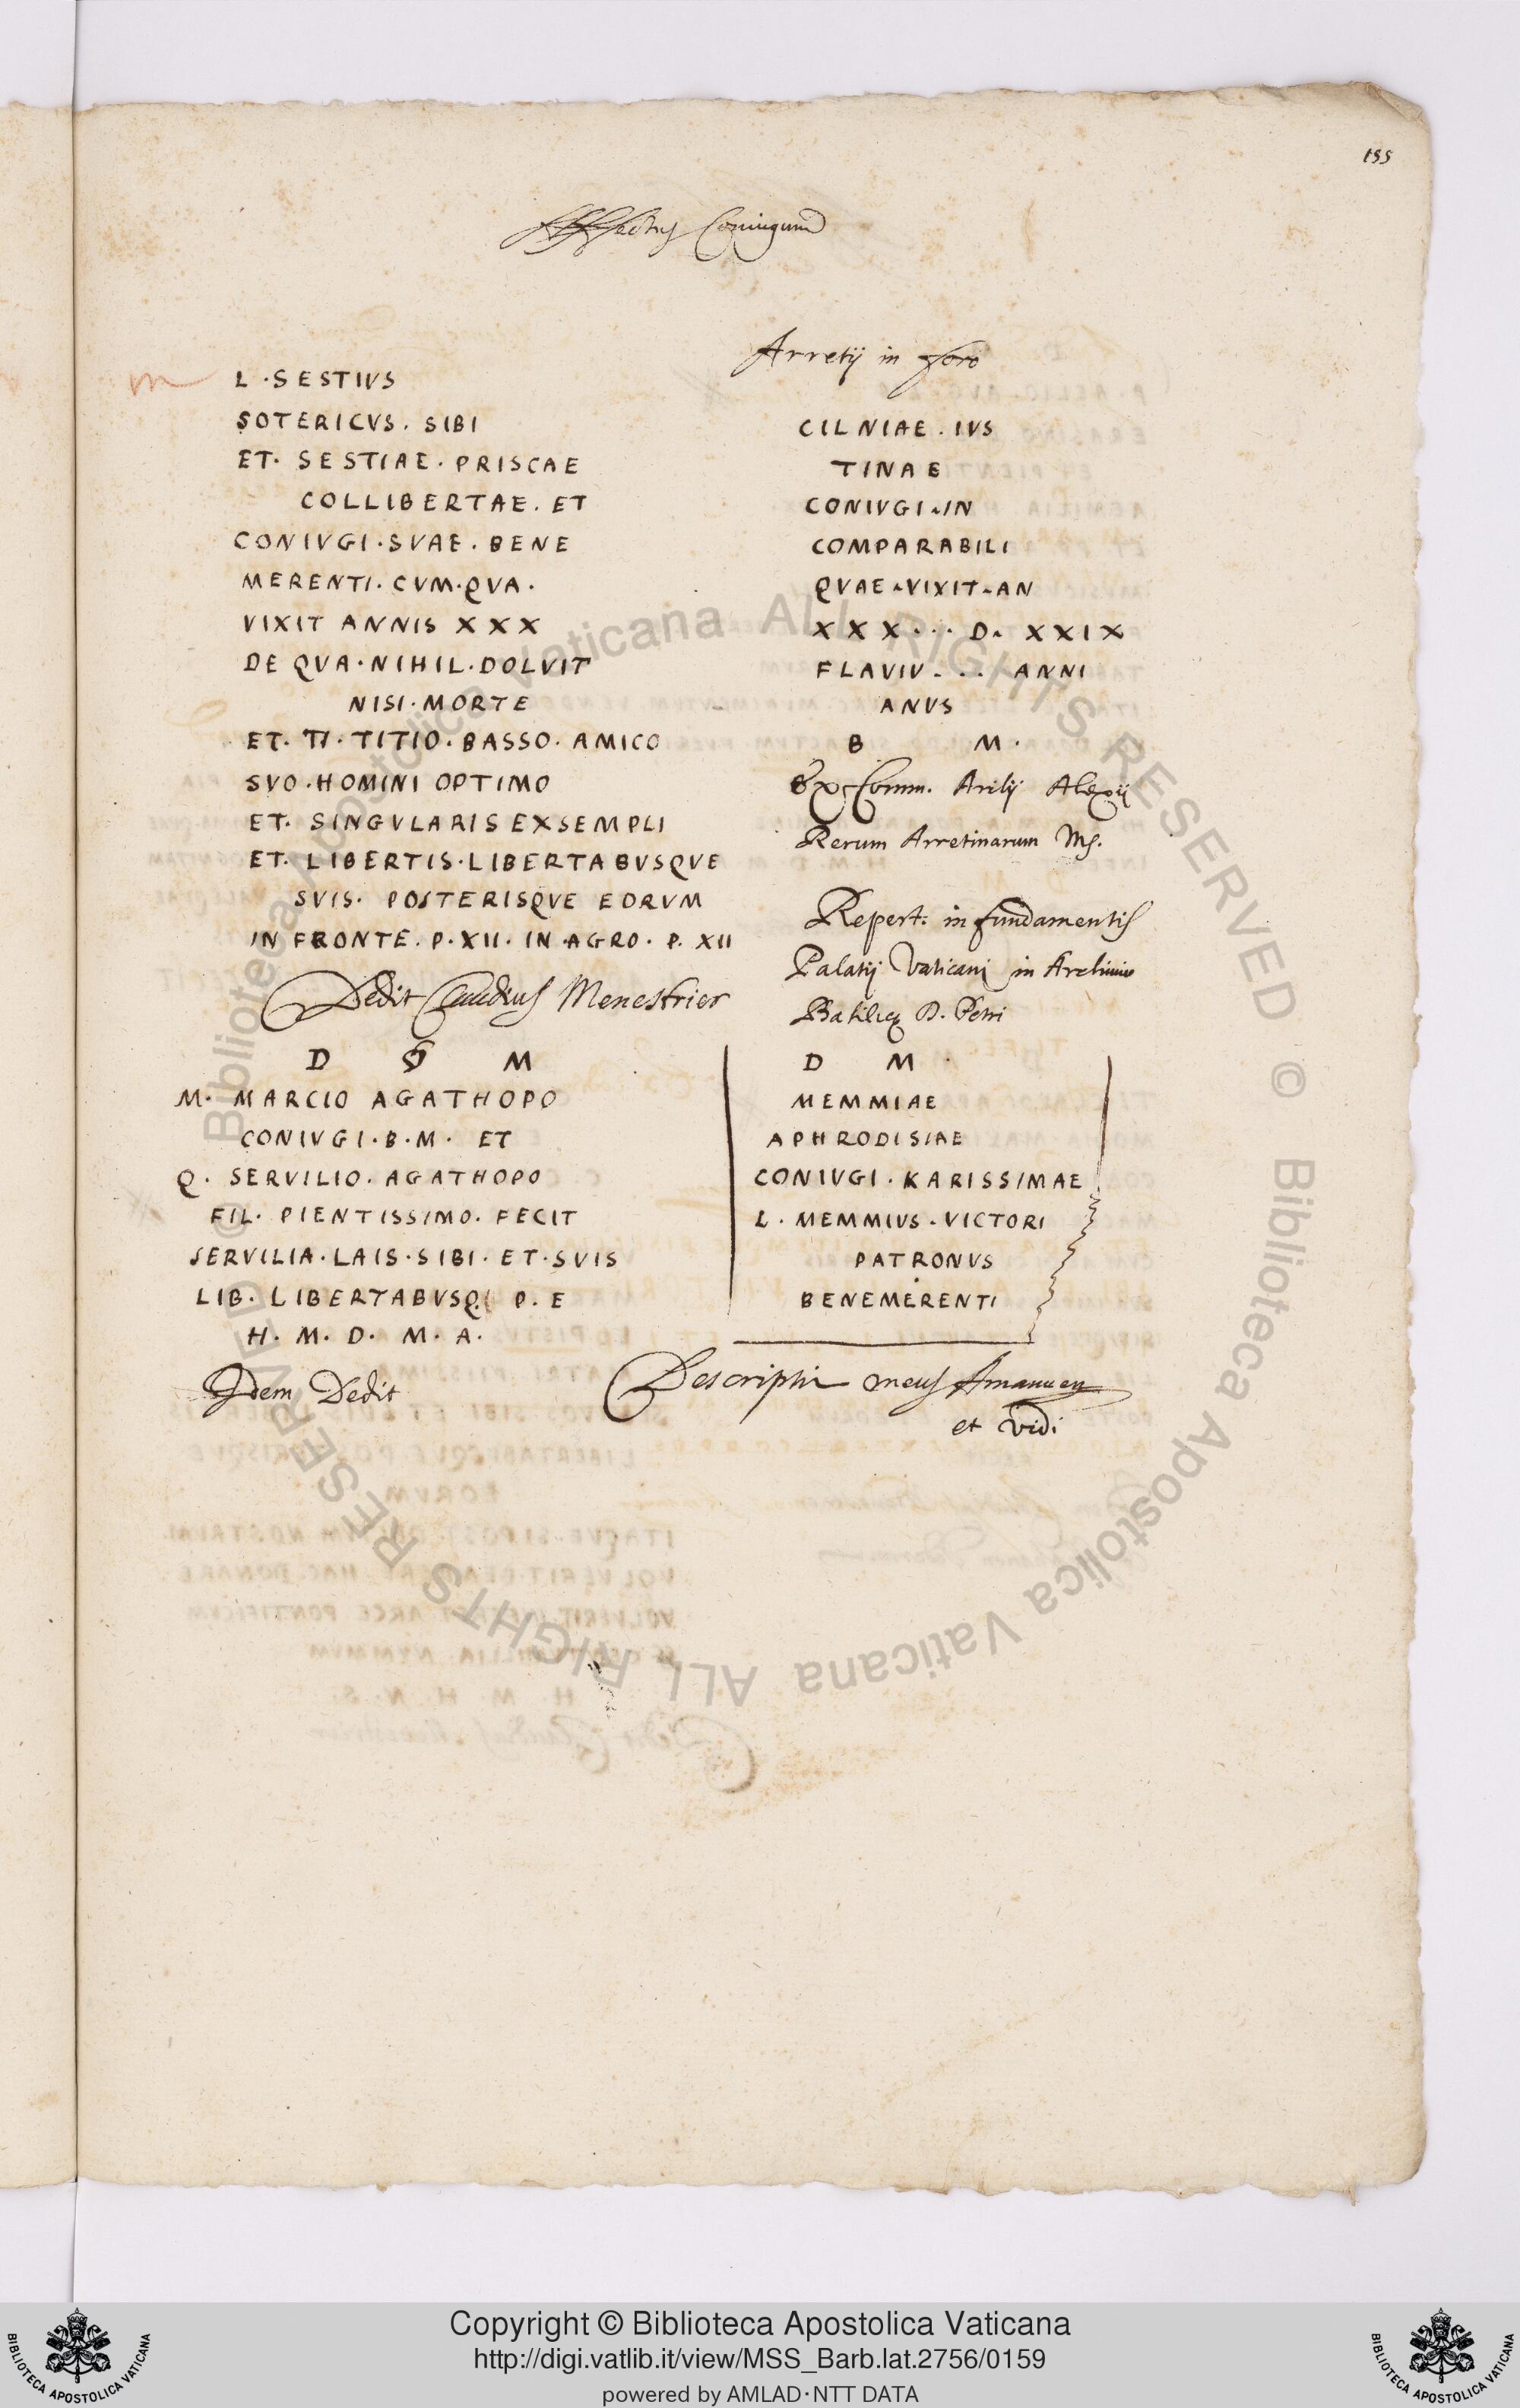 155
Affectus Coniugum
m
L ·SESTIVS
SOTERICVS. SIBI
ET· SESTIAE· PRISCAE
COLLIBERTAE. ET
CONIVGI·SVAE. BENE
MERENTI. CVM·QVA·
VIXIT ANNIS XXX
DE QVA·NIHIL·DOLVIT
NISI·MORTE
ET· TI·TITIO·BASSO· AMICO
SVO·HOMINI OPTIMO
ET· SINGVLARIS EXSEMPLI
ET. LIBERTIS·LIBERTABVSQVE
SVIS· POSTERISQVE EORVM
IN FRONTE. P·XII· IN AGRO· P. XII
Dedit Claudius Menestrier
D M
M· MARCIO AGATHOPO
CONIVGI·B·M· ET
Q· SERVILIO. AGATHOPO
FIL· PIENTISSIMO. FECIT
SERVILIA·LAIS·SIBI· ET·SVIS
LIB· LIBERTABVSQ P. E
H· M· D· M· A.
Idem Dedit
Arretij in foro
CILNIAE. IVS
TINAE
CONIVGI IN
COMPARABILI
QVAE VIXIT AN
XXX... D. XXIX
FLAVIV... ANNI
ANVS
B M·
Ex Comm. Alexij
Rerum Arretinarum Ms.
Repert: in fundamentis
Palatij Vaticani in
Basilicę D. Petri
D M
MEMMIAE
APHRODISIAE
CONIVGI·KARISSIMAE
L·MEMMIVS·VICTORI
PATRONVS
BENEMERENTI
Descripsit meus Amanuen
et vidi
Biblioteca Apostolica Vaticana ALL RIGHTS RESERVED ©
Biblioteca Apostolica Vaticana ALL RIGHTS RESERVED ©
Copyright © Biblioteca Apostolica Vaticana
http://digi.vatlib.it/view/MSS_Barb.lat.2756/0159
powered by AMLAD·NTT DATA
BIBLIOTECA APOSTOLICA VATICANA
BIBLIOTECA APOSTOLICA VATICANA